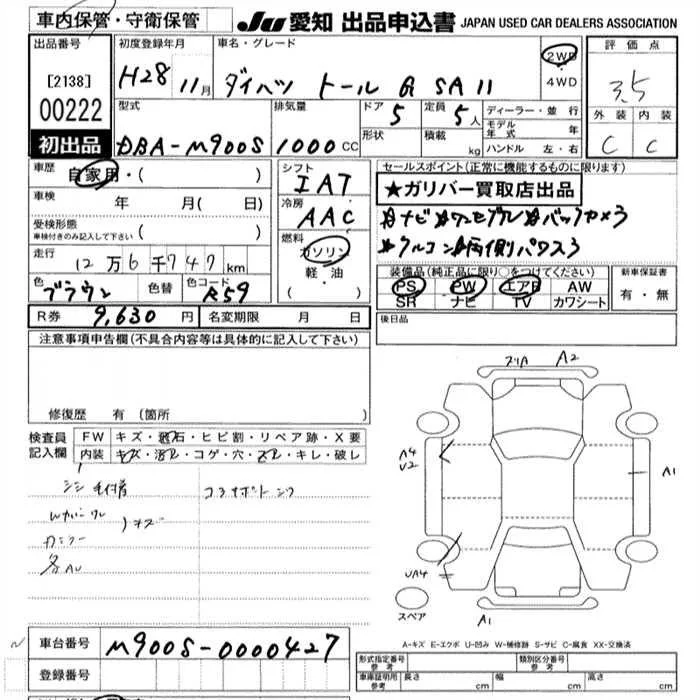 車内保管・守衛保管
JU 愛知 出品申込書 JAPAN USED CAR DEALERS ASSOCIATION
出品番号
[2138]
00222
初出品
初度登録年月
H28 11月
車名・グレード
ダイハツ トール G SA II
2WD
4WD
評価点
3.5
外装 内装
C C
型式
DBA-M900S
排気量
1000 CC
ドア
5
定員
5人
形状
積載
kg
ディーラー・並行
モデル年式 年
ハンドル 左・右
車歴
自家用・( )
車検
年 月( 日)
受検形態
車検付きのみ記入して下さい ( )
走行
12万6千747km
色
ブラウン
色替
色コード
R59
シフト
IAT
冷房
AAC
燃料
ガソリン
軽・油
・( )
セールスポイント(正常に機能するものに限ります)
★ガリバー買取店出品
装備品(純正品に限り○をつけてください)
PS PW エアB AW
SR ナビ TV カワシート
新車保証書
有・無
R券 9,630円
名変期限 月 日
後日品
注意事項申告欄(不具合内容等は具体的に記入して下さい)
修復歴 有(箇所
検査員記入欄
FW キズ・飛石・ヒビ割・リペア跡・X要
内装 キズ・汚れ・コゲ・穴・スレ・キレ・破レ
A2
A4
U2
A1
UA4
A1
スペア
A-キズ E-エクボ U-凹み W-補修跡 S-サビ C-腐食 XX-交換済
車台番号
M900S-0000427
登録番号
形式指定番号
参考
類別区分番号
参考
車庫証明用
参考
長さ cm
幅 cm
高さ cm